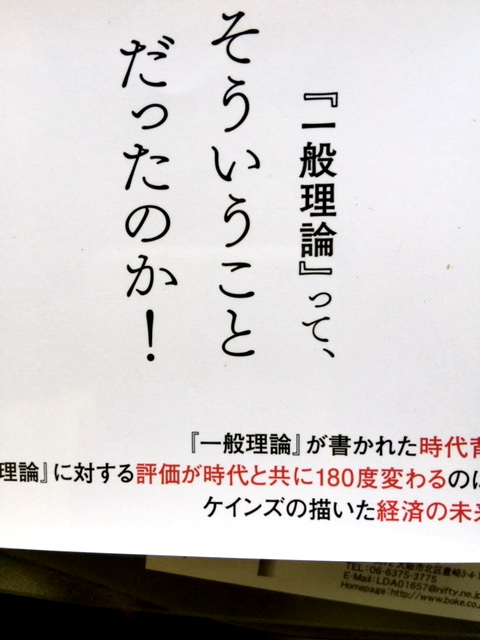 『一般理論』って、
そういうこと
だったのか!
『一般理論』が書かれた時代背
理論』に対する評価が時代と共に180度変わるのは
ケインズの描いた経済の未来
大阪市北区豊崎3-4-1
TEL:06-6375-3775
E-Mail:LDA01657@nifty.ne.j
Homepage:http://www.boke.co.